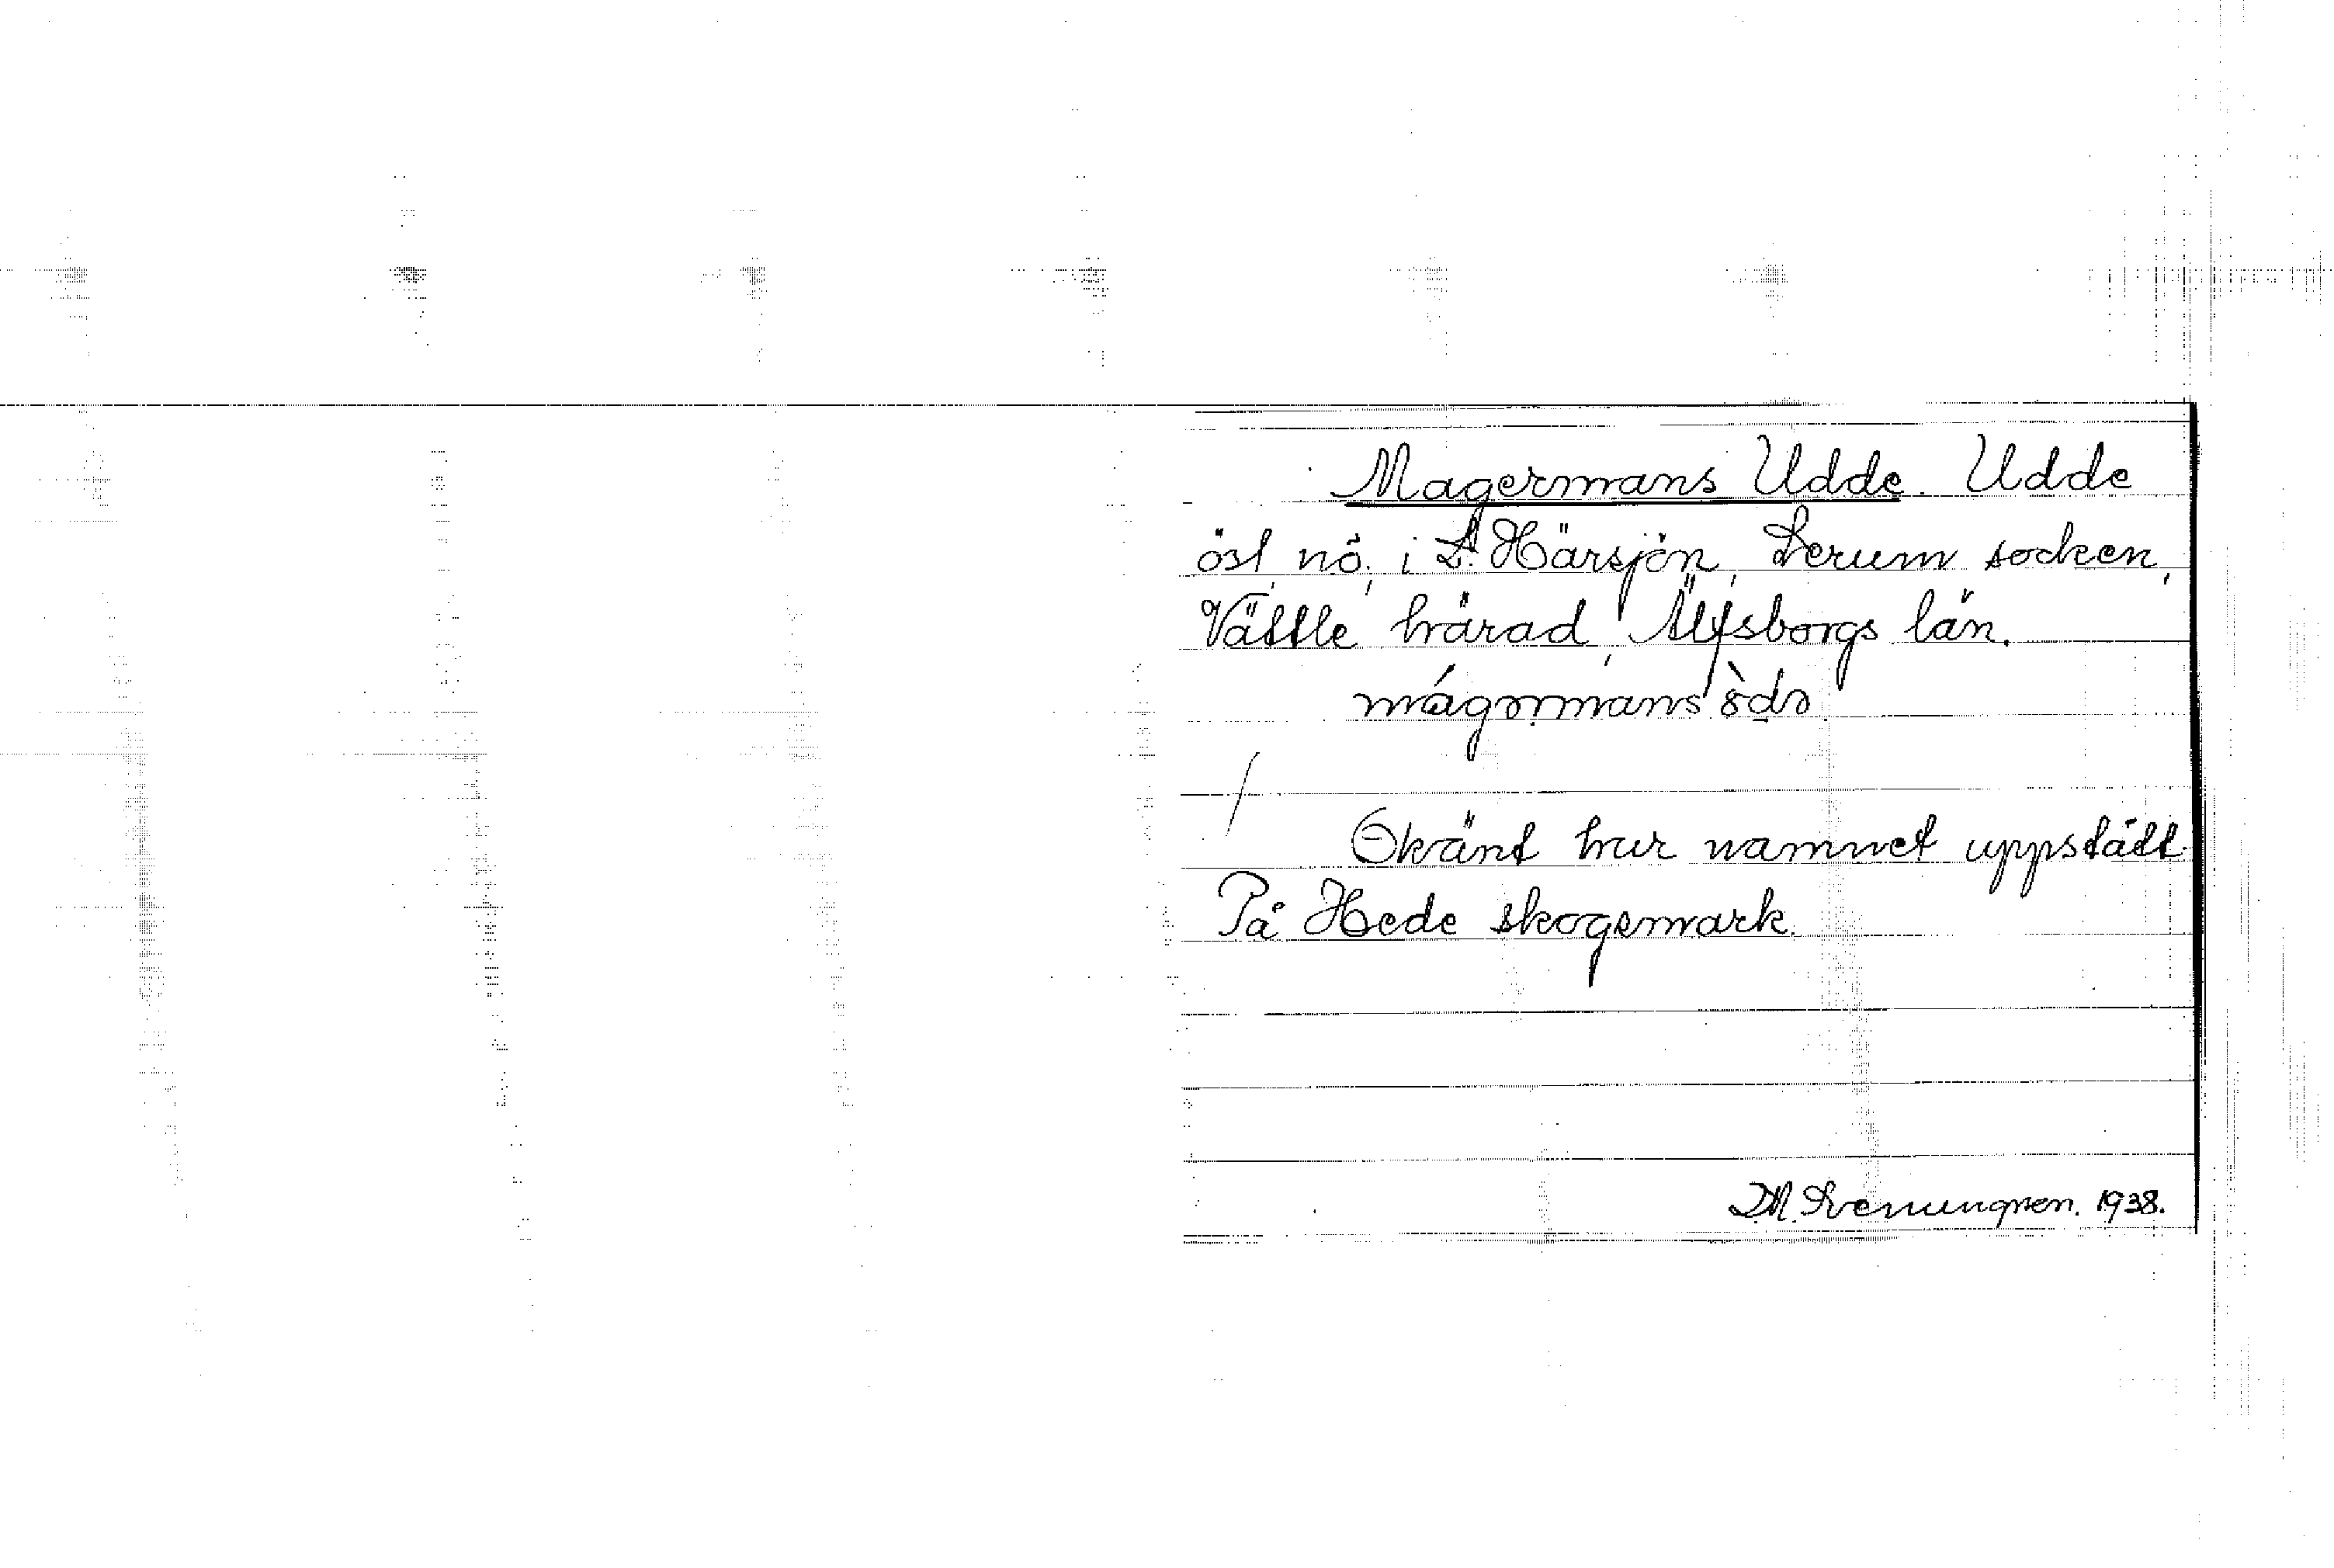 Magermans Udde. Udde
öst, nö, i St. Härsjön, Lerum socken,
Vättle härad, Älfsborgs län.
Okänt hur namnet uppstått.
På Hede skogsmark.
1938.